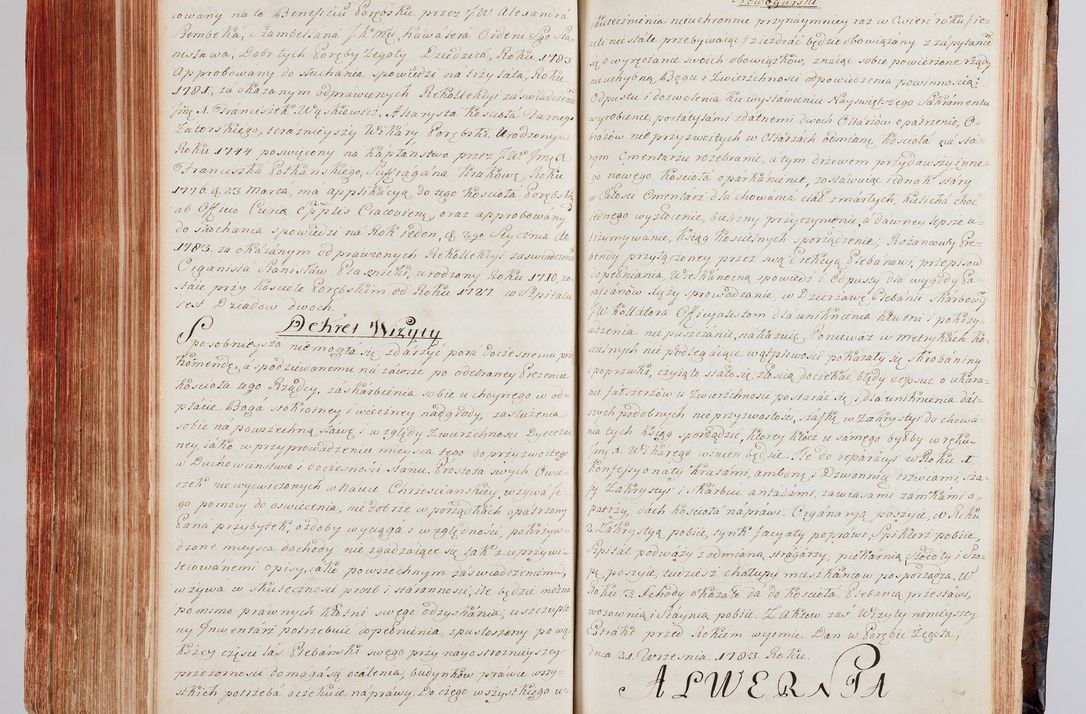 sowany na to Beneficiū Porębskie przez J.W. Alexandrá
Rembeka, Szambellaná J.K. Mci, Kawalera Orderu Sgo Sta-
nisława, Dobr tych Poręby Zegoty Dziedzica, Roku 1783
Approbowany do słuchania spowiedzi na trzy lata, Roku
1781, za okazanym odprawionych Rekollekcyi zaświadczeniē
Jmć X. Franciszek Wąskiewicz, Altarysta Kościoła Farnego
Zatorskiego, teraznieyszy Wikary Porębski, Urodzony
Roku 1744 poswięcony na Kapłanstwo przez J.W. Jmć X.
Franciszka Potkanskiego, Suffragana Krakows: Roku
1776 d. 23 Marca ma applikacyą do tego Kościoła Porębskie
ab Officio Curiæ Epplis Cracovien, oraz approbowany
do słuchania spowiedzi na Rok ieden, d. 2go Stycznia Ao
1783, za okazanym odprawionych Rekollekcyi zaświadczeniē
Organista Stanisław Ptasznicki, urodzony Roku 1710, zo-
staie przy Kościele Porębskim od Roku 1727 w Szpitalu
iest Dziadow dwoch.
Dekret Wizyty
Sposobnieysza nie mogła się zdarzyć pora doczesnemu pn
Komendę, a spodziewanemu na zawsze po odebraney Prezencie
Kościoła tego Rządcy, zaskarbienia sobie uchoynego w od-
płacie Boga stokrotney i wieczney nadgrody, zasłużenia
sobie na powszechną sławę i względy Zwierzchności Dyecezal-
ney, iako w przyprowadzeniu mieysca tego do przyzwoitego
w Duchowienstwie i doczesności stanu. Prostota swych Owie-
czek nie wycwiczonych w Nauce Chrześcianskiey, wzywa Je-
go pomocy do oswiecenia, nie dobrze w porządkach opatrzony
Pana przybytek, ozdoby wyciąga i względności, pokrzyw-
dzone mieysca dochody nie zgadzaiące się tak z uprzywi-
leiowanemi opisy, iako powszechnym zaświadczeniem,
wzywa w skuteczności prozb i staranności, ile będzie można
pomimo prawnych kłotni swego odzyskania; uszczuplo-
ny Inwentarz potrzebuie dopełnienia, spustoszony po wię-
kszey części las Plebanski swego przy nayostrożnieyszey
przezorności domagá się ocalenia; budynkow prawie wszy-
stkich potrzeba oczekuie naprawy. Do czego wszystkiego u-
Nowogorski
skutecznienia nieuchronnie przynaymniey raz w Cwierć roku (ie-
żeli nie stale przebywaiąc) zieżdżać będzie obowiązany z zapytaniē
się o wyręczanie swoich obowiązkow, znaiąc sobie powierzone rządy
nieuchybną Bogu i Zwierzchności odpowiedzenia powinnością:
Odpustu i dozwolenia ku wystawieniu Nayswiętszego Sakramentu
wyrobienie, portatylami zdatnemi dwoch Ołtarzow opatrzenie, O-
brazow nie przyzwoitych w Ołtarzách odmianę, Kościoła na sta-
rym Cmentarzu rozebranie, á tym drzewem przydawszy inne-
go nowego Kościoła oparkanienie, zostawuiąc iednak stary
w całości Cmentarz dla chowania ciał zmarłych, kielicha choć
iednego wyzłocenie, bielizny przyczynienie, á dawney lepsze u-
trzymywanie, Ksiąg Kościelnych sporządzenie; Rożancowey Pre-
bendy przyłączoney przez swą Erekcyą Plebanowi, przepisow
dopełniania, Wielkanocną spowiedź i Odpusty dla wygody Pa-
rafianow służy sprowadzanie, w Dzierżawę Plebanii Skarbowy
J.W. Kollatora Officyalistom dla uniknienia kłutni i pokrzy-
wdzenia nie puszczanie nakazuię. Ponieważ w metrykach Ko-
ścielnych nie podlegaiące wątpliwości pokazały się skrobaniny
i poprawki, czyiąto stało się złością dociekać, błędy zepsuć o ukara-
nie fałszerzow u Zwierzchności postarać się, i dla uniknienia dal-
szych podobnych nie przyzwoitości, szafkę w Zakrystyi do chowa-
nia tych Ksiąg sporządzić, ktorey klucz u samego byłby w ręku
Jmć X. Wikárego, winien będzie. Ile do reparacyi w Roku 1.
Konfessyonały kratami, ambonę, Dzwonnicę drzwiami, sza-
fy Zakrystyi i skarbiec antabami, zawiasami zamkami o-
patrzy, dach Kościoła naprawi, Organaryą poszyie, w Roku
2 Zakrystyą pobiie, tynk facyaty poprawi, Spiklerz pobiie,
Szpital podwáży z odmianą strágarzy, piekarnią, stodoły i sto-
pę poszyie, tudzież chałupy muszkańcow posporządza. W
Roku 3. Schody okazałe da do Kościoła, Plebanią przestawi,
wozownią i stáynią pobiie. Z Aktow zaś Wizyty ninieyszey
Extrakt przed Rokiem wyimie. Dan w Porębie Zegota,
dnia 21. Wrzesnia. 1783. Roku.
ALWERNIA